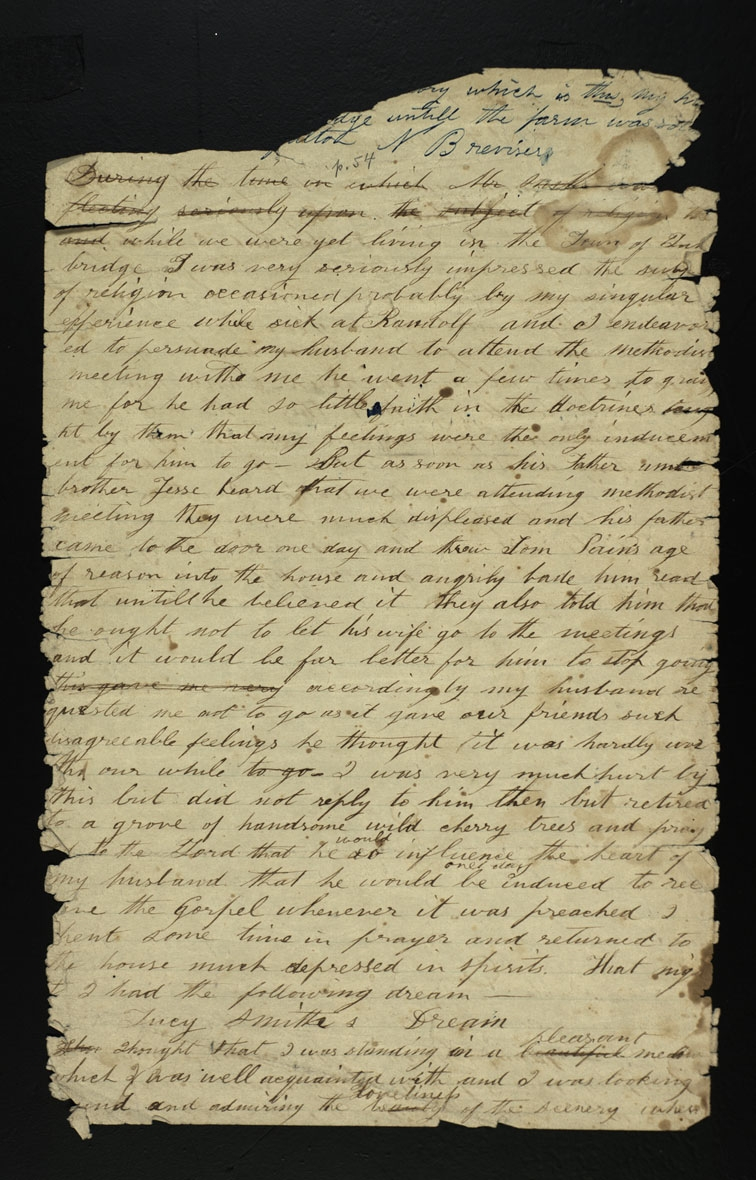 ory which is thus, my h
dge untill the farm was so
N B reviser
p. 54
During the time in which Mr
flecting seriously upon the subject of religion
and while we were yet living in the Town of Tun
bridge I was very seriously impressed the subj
of religion occasioned probably by my singular
experience while sick at Randolf and I endeavor
ed to persuade my husband to attend the methodist
meeting with me he went a few times to grati
me for he had so little faith in the doctrines taug
ht by them that my feelings were the only inducem
ent for him to go — But as soon as his Father and
brother Jesse heard that we were attending methodist
meeting they were much displeased and his father
came to the door one day and threw Tom Pains age
of reason into the house and angrily bade him read
that untill he believed it they also told him that
he ought not to let his wife go to the meetings
and it would be far better for him to stop going
this gave me very accordingly my husband re
quested me not to go as it gave our friends such
disagreeable feelings he thought it was hardly wor
th our while to go — I was very much hurt by
this but did not reply to him then but retired
to a grove of handsome wild cherry trees and pray
would
ed to the Lord that he so influence the heart of
one day
my husband that he would be induced to rec
eive the Gospel whenever it was preached I
spent some time in prayer and returned to
the house much depressed in spirits That nig
t I had the following dream —
Lucy Smiths Dream
pleasant
thought that I was standing in a beautiful meadow
which I was well acquainted with and I was looking
loveliness
ound and admiring the beauty of the scenery when